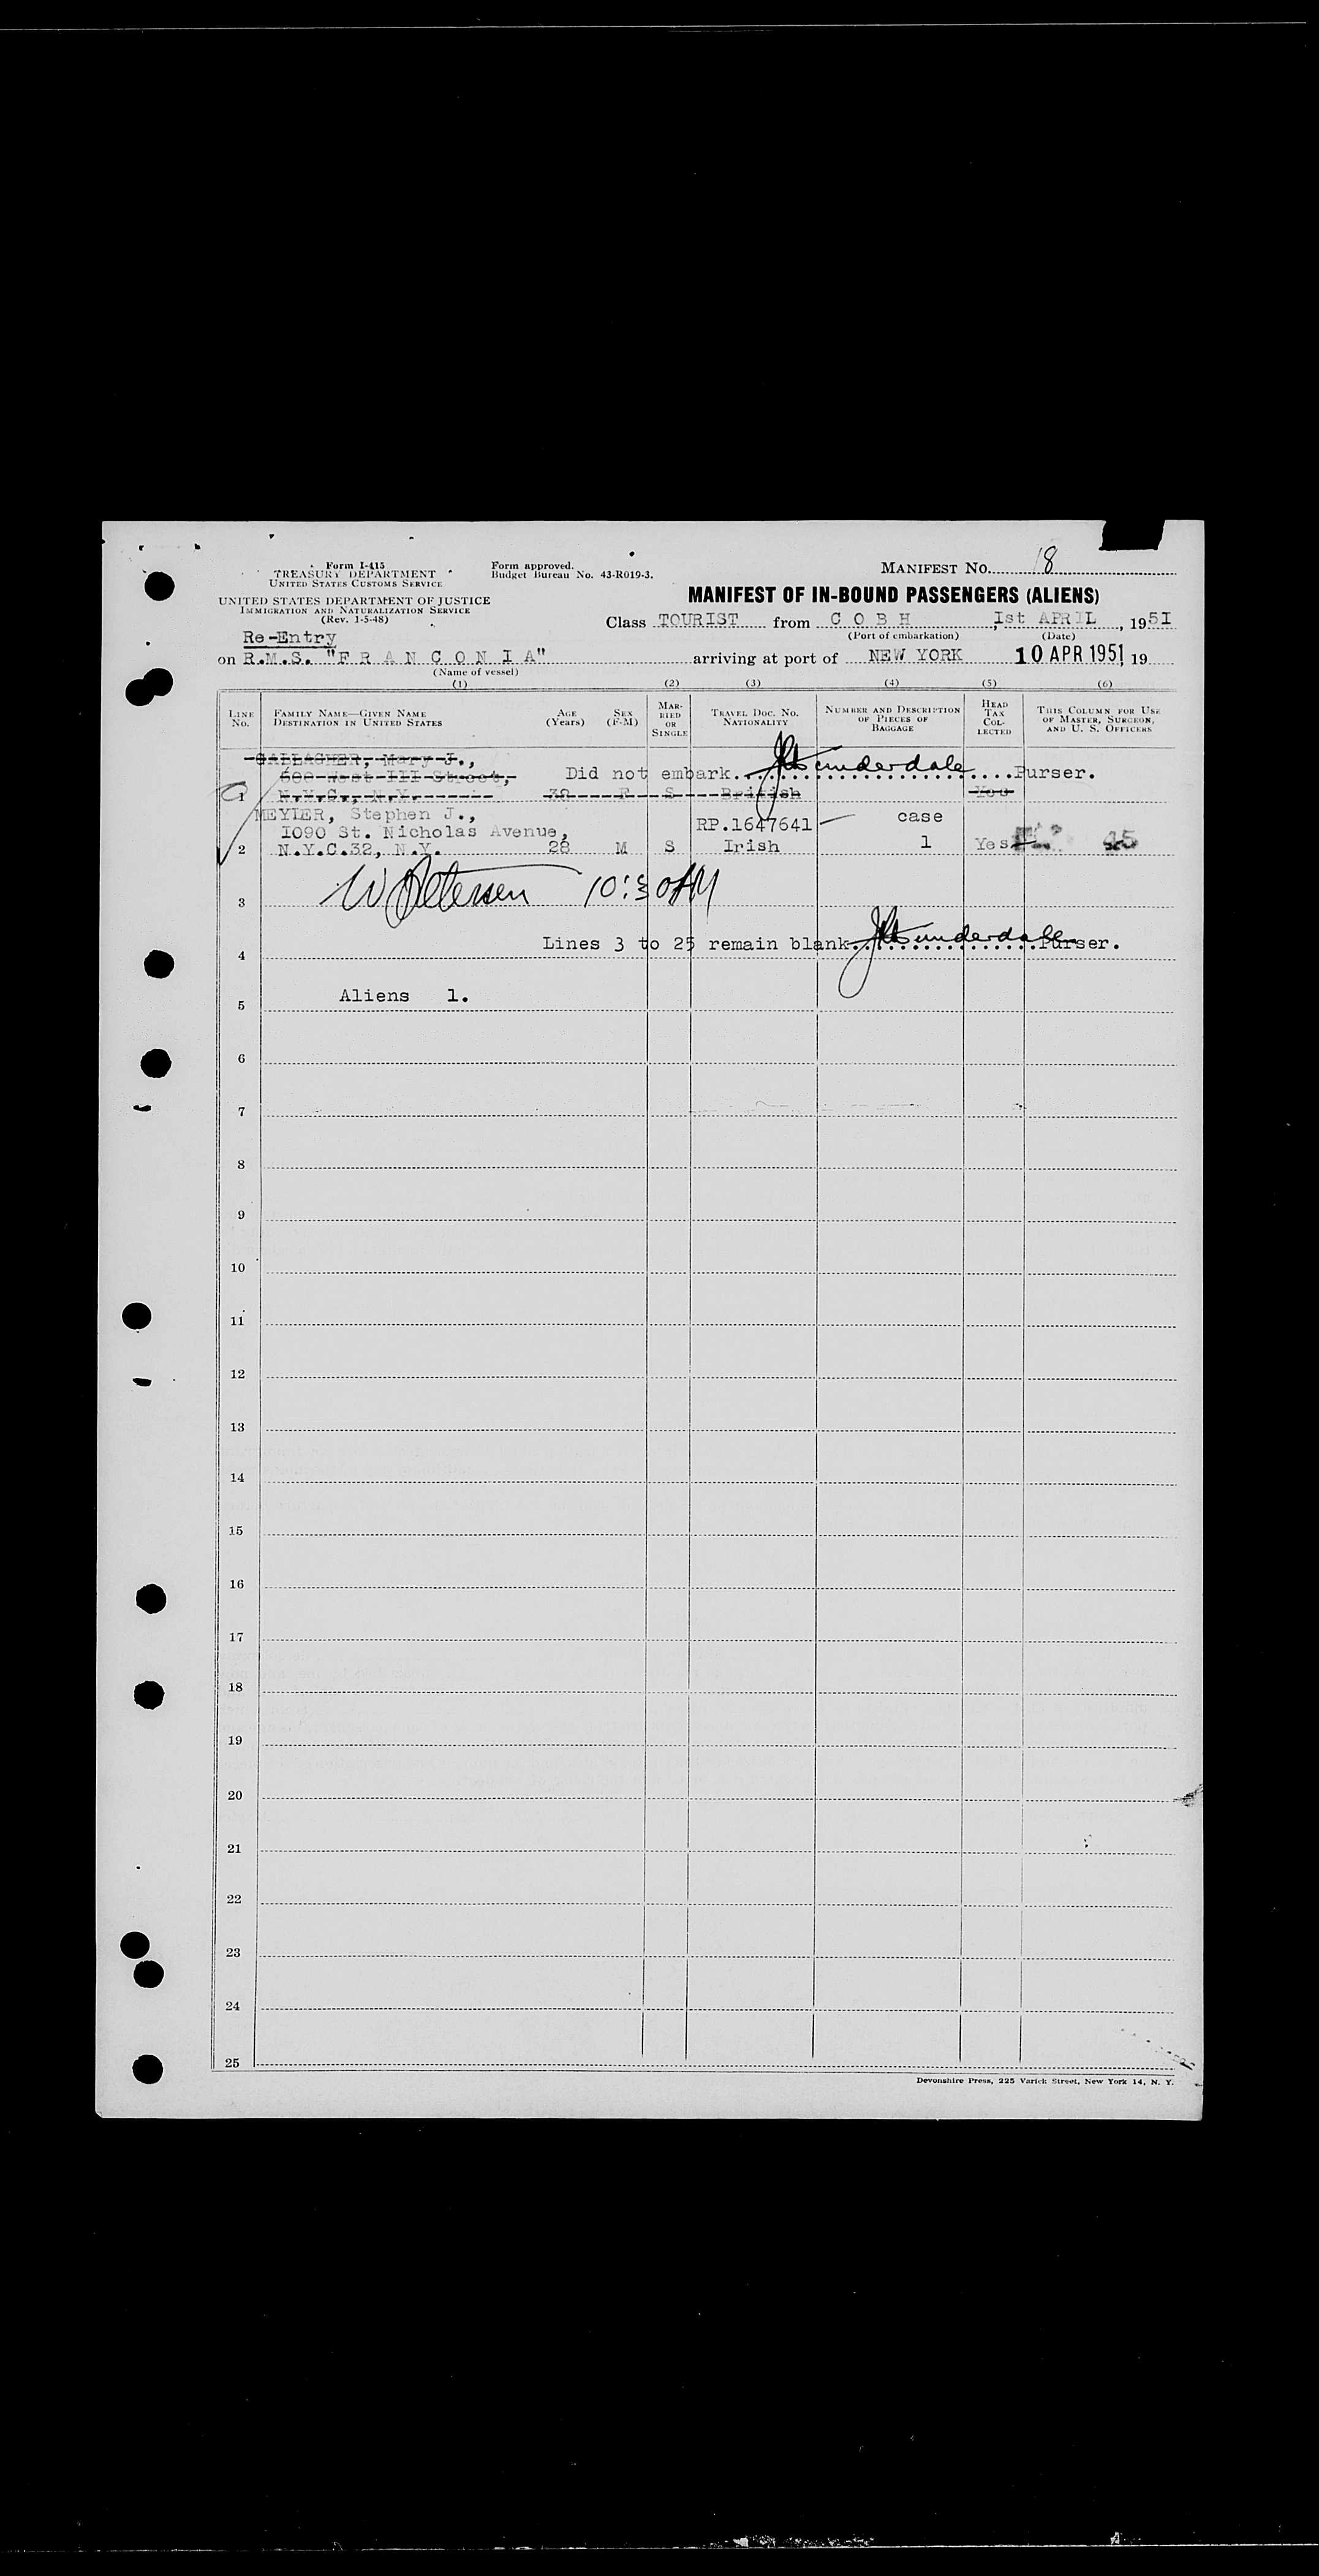 Form I-415
TREASURY DEPARTMENT
UNITED STATES CUSTOMS SERVICE
UNITED STATES DEPARTMENT OF JUSTICE
IMMIGRATION AND NATURALIZATION SERVICE
(Rev. 1-5-48)
Form approved.
Budget Bureau No. 43-R019-3.
MANIFEST NO. 18
MANIFEST OF IN-BOUND PASSENGERS (ALIENS)
Class TOURIST from C O B H, 1st APRIL, 1951
(Port of embarkation) (Date)
Re-Entry
on R.M.S. "F R A N C O N I A" arriving at port of NEW YORK 10 APR 1951 19
(Name of vessel)
(1) (2) (3) (4) (5) (6)
LINE NO.
FAMILY NAME—GIVEN NAME
DESTINATION IN UNITED STATES
AGE (Years)
SEX (F-M)
MARRIED OR SINGLE
TRAVEL DOC. NO.
NATIONALITY
NUMBER AND DESCRIPTION OF PIECES OF BAGGAGE
HEAD TAX COLLECTED
THIS COLUMN FOR USE OF MASTER, SURGEON, AND U. S. OFFICERS
GALLAGHER, Mary J.,
600 West III Street, Did not embark. Purser.
1 N.Y.C., N.Y. 38 F S British Yes
MEYLER, Stephen J.,
1090 St. Nicholas Avenue, RP.1647641 case
2 N.Y.C.32, N.Y. 28 M S Irish 1 Yes 45
3 W Petersen 10:30 AM
Lines 3 to 25 remain blank. Purser.
4
Aliens 1.
5
6
7
8
9
10
11
12
13
14
15
16
17
18
19
20
21
22
23
24
25
Devonshire Press, 225 Varick Street, New York 14, N. Y.